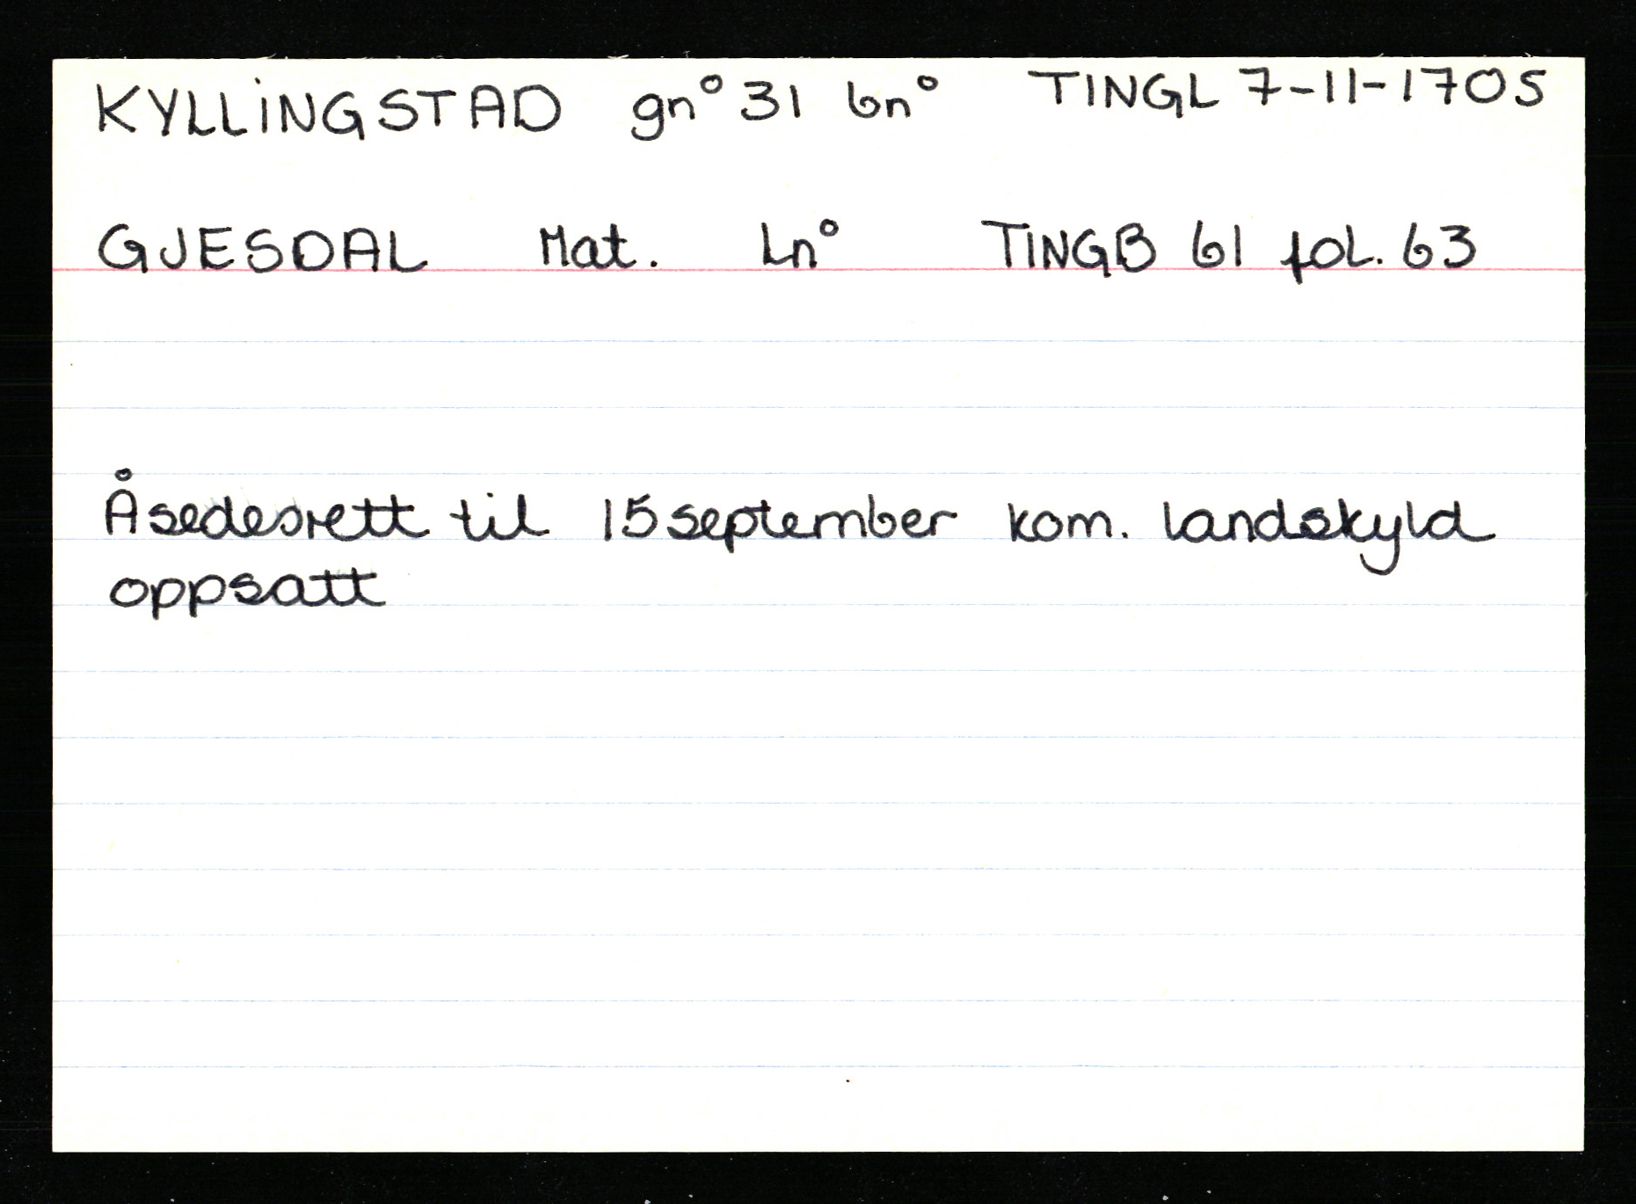 KYLLINGSTAD gn° 31 bn° TINGL 7-11-1705
GJESDAL Mat. Ln° TINGB 61 fol. 63
Åsedesrett til 15 september kom. landskyld
oppsatt